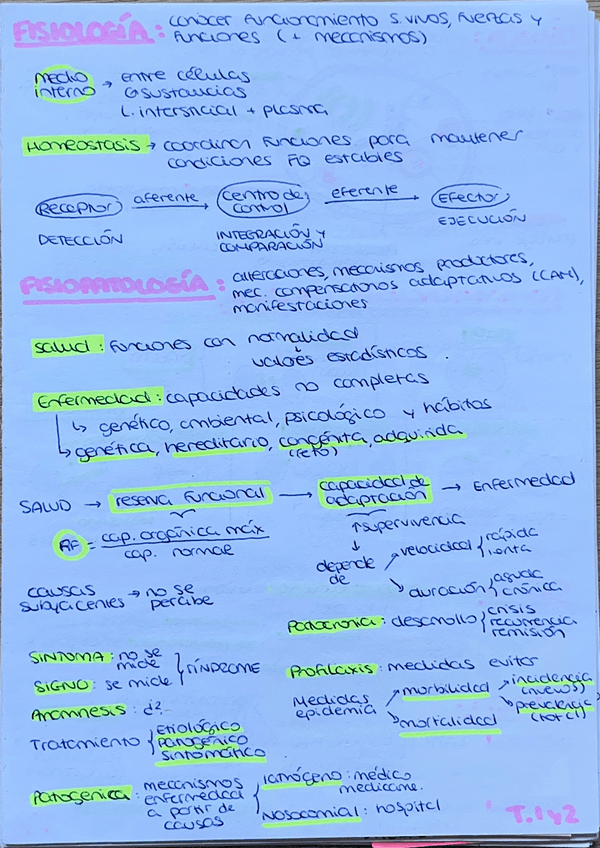 FISIOLOGÍA: conocer funcionamiento s.vivos, fuerzas y
funciones (+ mecanismos)
medio interno → entre células
↳ sustancias
L. intersticial + plasma
Homeostasis → coordinan funciones para mantener
condiciones FQ estables
Receptor aferente → centro de control eferente → Efector
DETECCIÓN INTEGRACIÓN Y COMPARACIÓN EJECUCIÓN
FISIOPATOLOGÍA: alteraciones, mecanismos productores,
mec. compensatorios adaptativos (CAM),
manifestaciones
Salud: funciones con normalidad
↓
valores estadísticos.
Enfermedad: capacidades no completas
↳ genético, ambiental, psicológico y hábitos
↳ genética, hereditario, congénita, adquirida
(feto)
SALUD → reserva funcional → capacidad de adaptación → Enfermedad
RF = cap. orgánica máx
cap. normal
↑supervivencia
↓
depende de
velocidad { rápida
lenta
duración { aguda
crónica
causas subyacentes → no se percibe
Patocronia: desarrollo { crisis
recurrencia
remisión
SÍNTOMA: no se mide
SIGNO: se mide } SÍNDROME
Anamnesis: ¿?
Tratamiento { etiológico
patogénico
sintomático
Profilaxis: medidas evitar
Medidas epidemia
morbilidad → incidencia (nuevos)
→ prevalencia (total)
mortalidad
Patogenica: mecanismos
enfermedad
a partir de
causas
Iatrógeno: médico
medicame.
Nosocomial: hospital
T.1 y 2